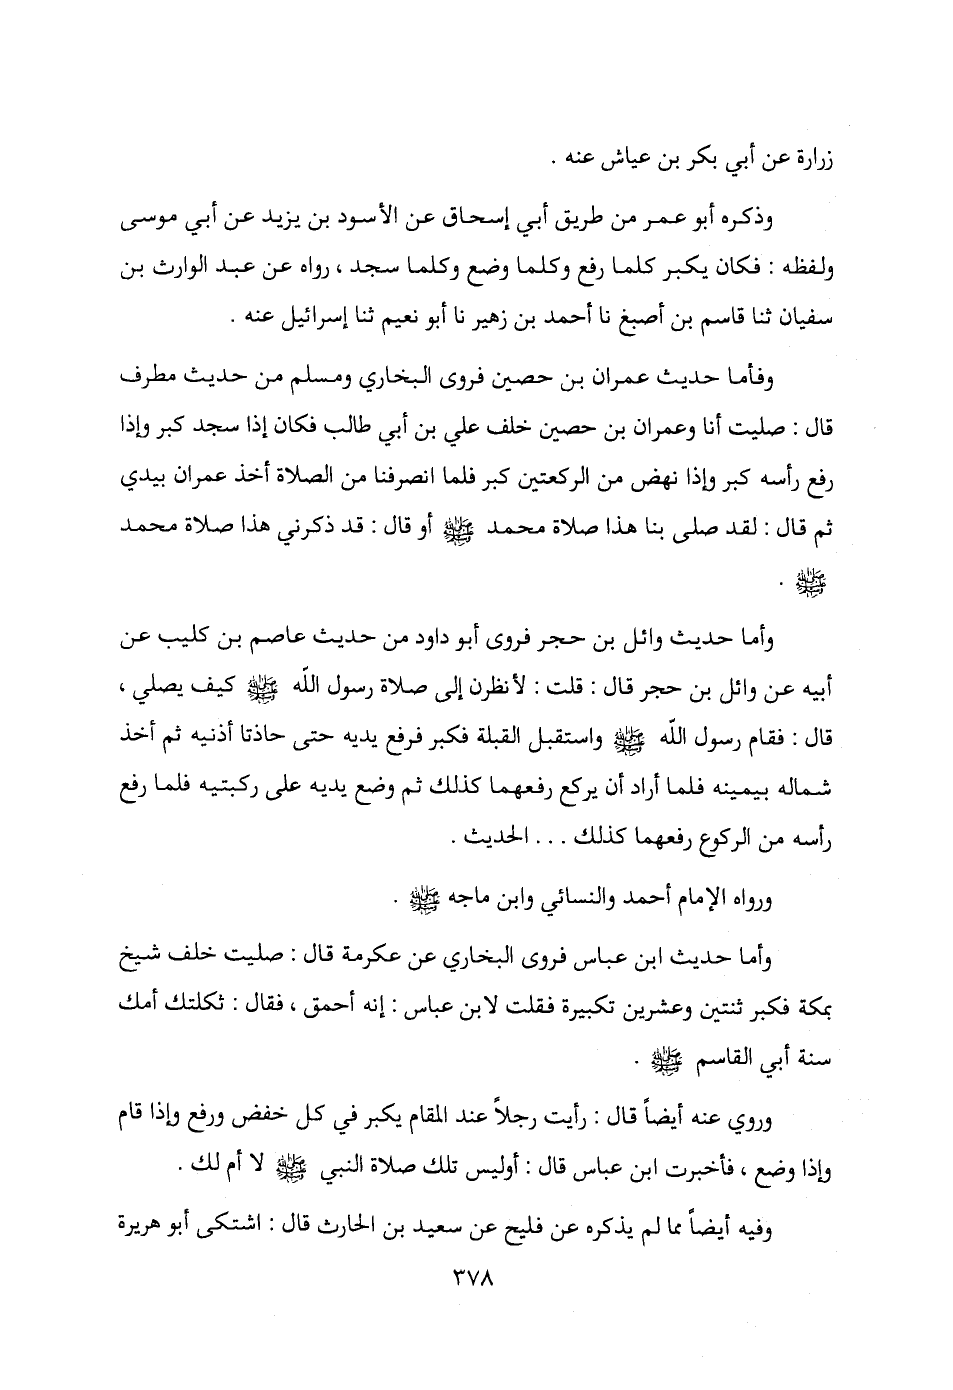 زرارة عن أبي بكر بن عياش عنه .
وذكره أبو عمر من طريق أبي إسحاق عن الأسود بن يزيد عن أبي موسى
ولفظه : فكان يكبر كلما رفع وكلما وضع وكلما سجد ، رواه عن عبد الوارث بن
سفيان ثنا قاسم بن أصبغ نا أحمد بن زهير نا أبو نعيم ثنا إسرائيل عنه .
وفأما حديث عمران بن حصين فروى البخاري ومسلم من حديث مطرف
قال : صليت أنا وعمران بن حصين خلف علي بن أبي طالب فكان إذا سجد كبر وإذا
رفع رأسه كبر وإذا نهض من الركعتين كبر فلما انصرفنا من الصلاة أخذ عمران بيدي
ثم قال : لقد صلى بنا هذا صلاة محمد ﷺ أو قال : قد ذكرني هذا صلاة محمد
ﷺ .
وأما حديث وائل بن حجر فروى أبو داود من حديث عاصم بن كليب عن
أبيه عن وائل بن حجر قال : قلت : لأنظرن إلى صلاة رسول الله ﷺ كيف يصلي ،
قال : فقام رسول الله ﷺ واستقبل القبلة فكبر فرفع يديه حتى حاذتا أذنيه ثم أخذ
شماله بيمينه فلما أراد أن يركع رفعهما كذلك ثم وضع يديه على ركبتيه فلما رفع
رأسه من الركوع رفعهما كذلك ... الحديث .
ورواه الإمام أحمد والنسائي وابن ماجه ﷺ .
وأما حديث ابن عباس فروى البخاري عن عكرمة قال : صليت خلف شيخ
بمكة فكبر ثنتين وعشرين تكبيرة فقلت لابن عباس : إنه أحمق ، فقال : ثكلتك أمك
سنة أبي القاسم ﷺ .
وروي عنه أيضاً قال : رأيت رجلاً عند المقام يكبر في كل خفض ورفع وإذا قام
وإذا وضع ، فأخبرت ابن عباس قال : أوليس تلك صلاة النبي ﷺ لا أم لك .
وفيه أيضاً مما لم يذكره عن فليح عن سعيد بن الحارث قال : اشتكى أبو هريرة
٣٧٨